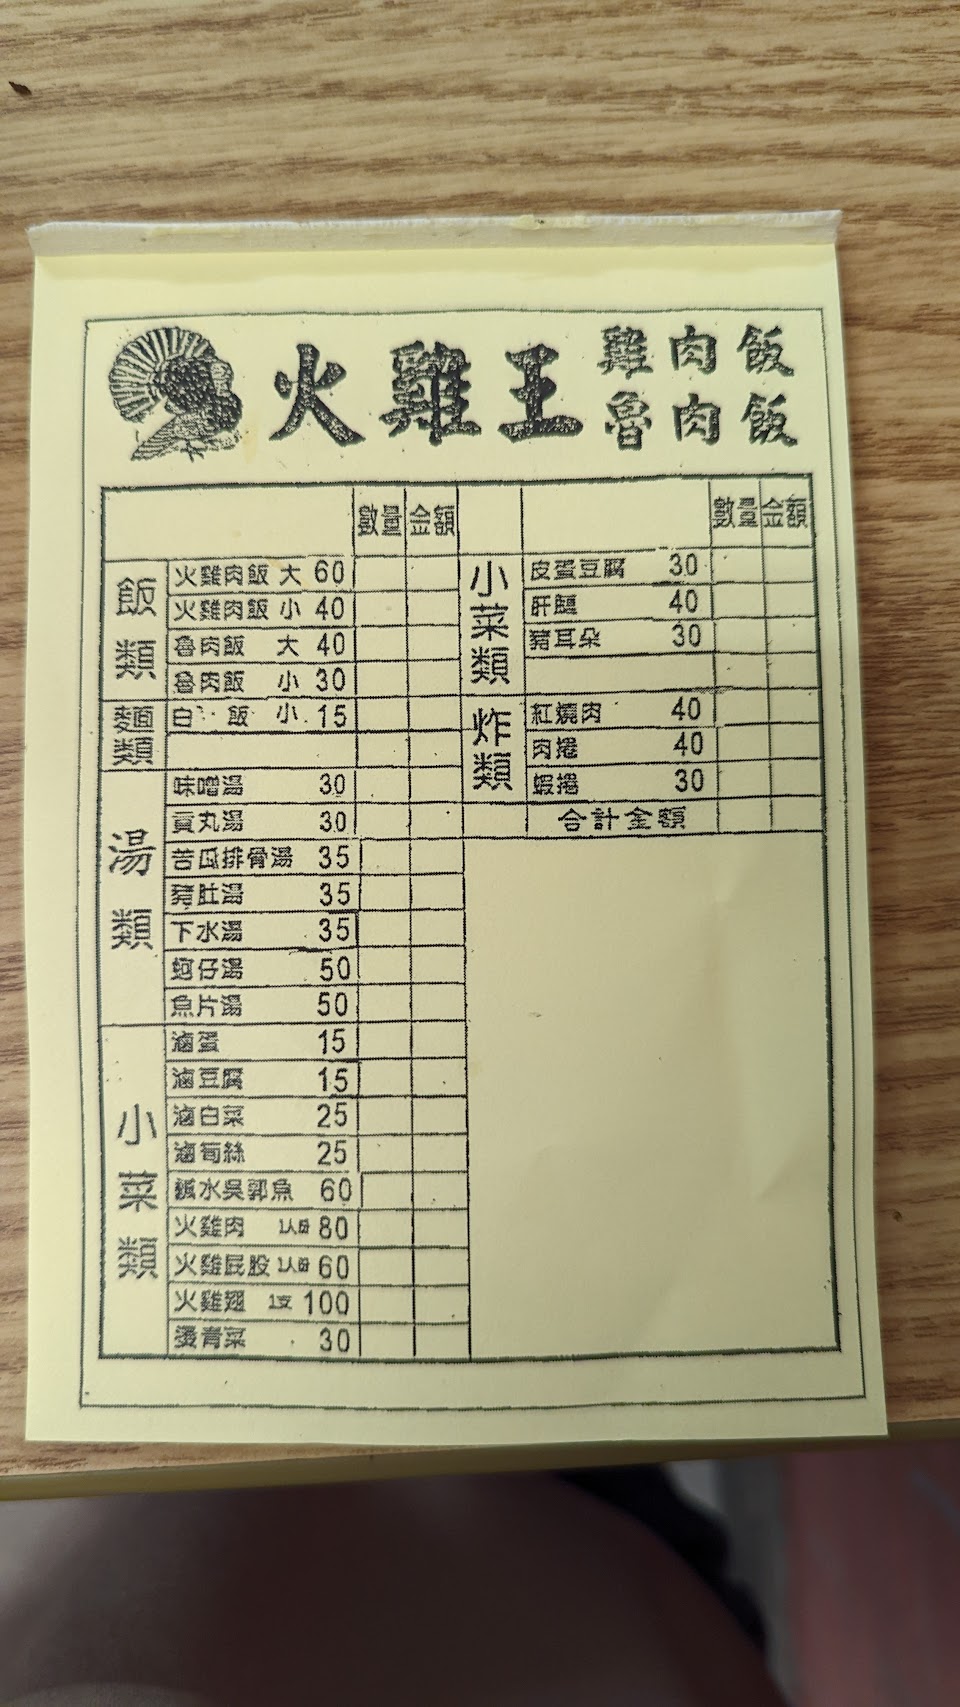 火雞王
雞肉飯
魯肉飯
數量 金額
飯類
火雞肉飯 大 60
火雞肉飯 小 40
魯肉飯 大 40
魯肉飯 小 30
麵類
白飯 小 15
湯類
味噌湯 30
貢丸湯 30
苦瓜排骨湯 35
豬肚湯 35
下水湯 35
蚵仔湯 50
魚片湯 50
小菜類
滷蛋 15
滷豆腐 15
滷白菜 25
滷筍絲 25
鹹水吳郭魚 60
火雞肉 1人份 80
火雞屁股 1人份 60
火雞翅 1支 100
燙青菜 30
數量 金額
小菜類
皮蛋豆腐 30
肝 40
豬耳朵 30
炸類
紅燒肉 40
肉捲 40
蝦捲 30
合計金額